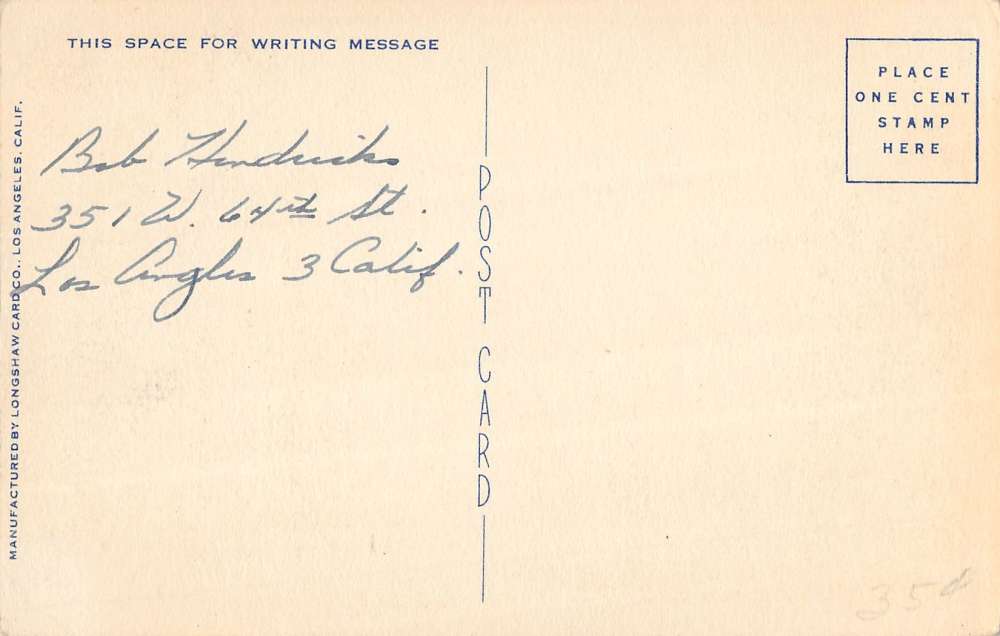 THIS SPACE FOR WRITING MESSAGE
PLACE
ONE CENT
STAMP
HERE
MANUFACTURED BY LONGSHAW CARD CO., LOS ANGELES, CALIF.
Bob Hendricks
351 W. 64th St.
Los Angles 3 Calif.
POST CARD
35¢